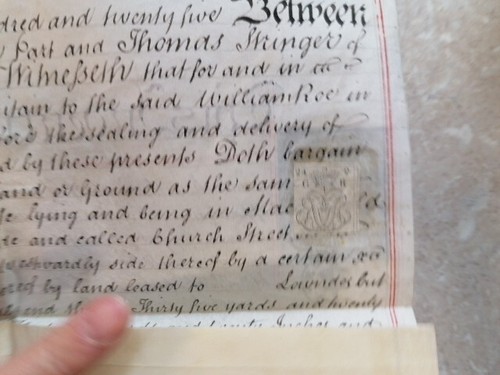 dred and twenty five Between
Part and Thomas Stringer of
Witnesseth that for and in
itain to the said William Roe in
fore the sealing and delivery of
d by these presents Doth bargain
and or Ground as the sam
lying and being in Mac ld
and called Church Street
westwardly side thereof by a certain
ereof by land leased to Lowndes but
end th Thirty five yards and twenty
and twenty Inches and